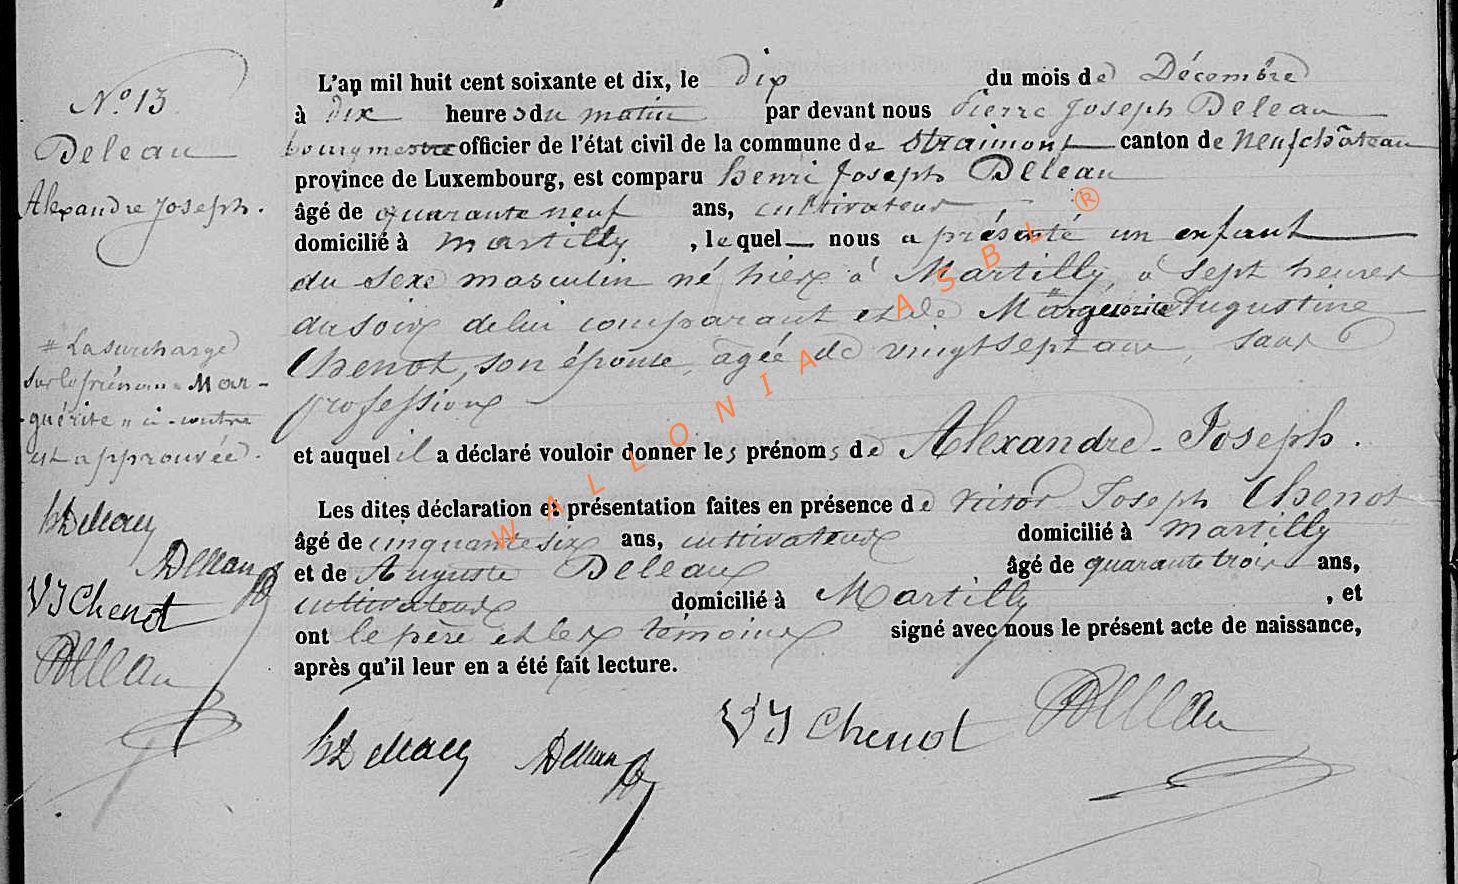 N° 13
Deleau
Alexandre Joseph.
L'an mil huit cent soixante et dix, le dix du mois de Décembre
à dix heures du matin par devant nous Pierre Joseph Deleau
bourgmestre officier de l'état civil de la commune de Straimont canton de Neufchâteau
province de Luxembourg, est comparu henri Joseph Deleau
âgé de quarante neuf ans, cultivateur
domicilié à Martilly, lequel nous a présenté un enfant
du sexe masculin né hier à Martilly, à sept heures
du soir de lui comparant et de Marguerite Augustine
Chenot, son épouse, agée de vingt sept ans sans
profession
et auquel il a déclaré vouloir donner les prénoms de Alexandre-Joseph.
Les dites déclaration et présentation faites en présence de Victor Joseph Chenot
âgé de cinquante six ans, cultivateur domicilié à Martilly
et de Auguste Deleau âgé de quarante trois ans,
cultivateur domicilié à Martilly, et
ont le père et les témoins signé avec nous le présent acte de naissance,
après qu'il leur en a été fait lecture.
# La surcharge
sur le prénom "Mar-
guérite" ci-contre
est approuvée.
hDeleau
ADeleau
VJ Chenot
PDeleau
hDeleau ADeleau VJ Chenot PDeleau
WALLONIA ASBL ®